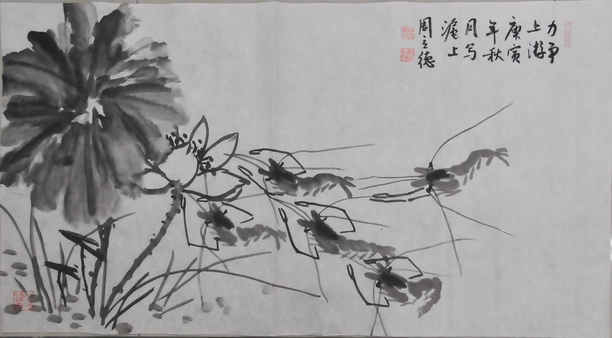 力争
上游
庚寅
年秋
月写
滬上
周立德